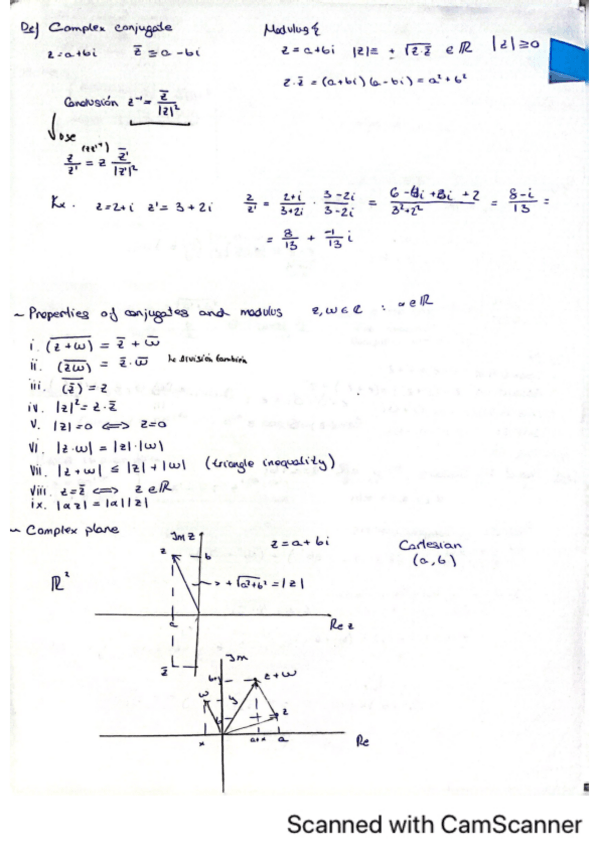 Def Complex conjugate
z=a+bi z̅ = a-bi
Modulus
z=a+bi |z|= + √z·z̅ ∈ ℝ |z|≥0
z·z̅ = (a+bi)(a-bi) = a²+b²
Conclusión z⁻¹ = z̅/|z|²
use
z/z' = z z̅'/|z'|²
Ex. z=2+i z'=3+2i z/z' = 2+i/3+2i · 3-2i/3-2i = 6-4i+3i+2/3²+2² = 8-i/13 =
= 8/13 + -1/13 i
~ Properties of conjugates and modulus z,w∈ℂ : α∈ℝ
i. (z+w)‾ = z̅ + w̅
ii. (zw)‾ = z̅·w̅ la división también
iii. (z̅)‾ = z
iv. |z|² = z·z̅
v. |z|=0 ⟺ z=0
vi. |z·w| = |z|·|w|
vii. |z+w| ≤ |z|+|w| (triangle inequality)
viii. z=z̅ ⟺ z∈ℝ
ix. |αz| = |α||z|
~ Complex plane
Im z
z b
z=a+bi
Cartesian
(a,b)
ℝ²
+√a²+b² = |z|
a
Re z
z̅
Im
z+w
w y
b z
x a+x a
Re
Scanned with CamScanner